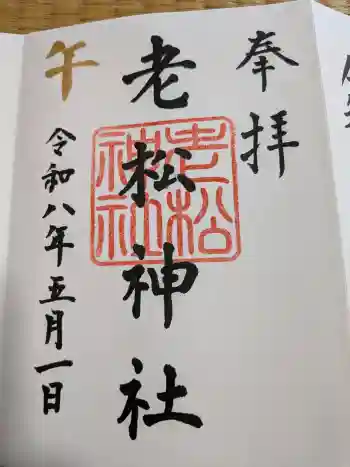 奉拝
老松神社
老松
神社
午
令和八年五月一日